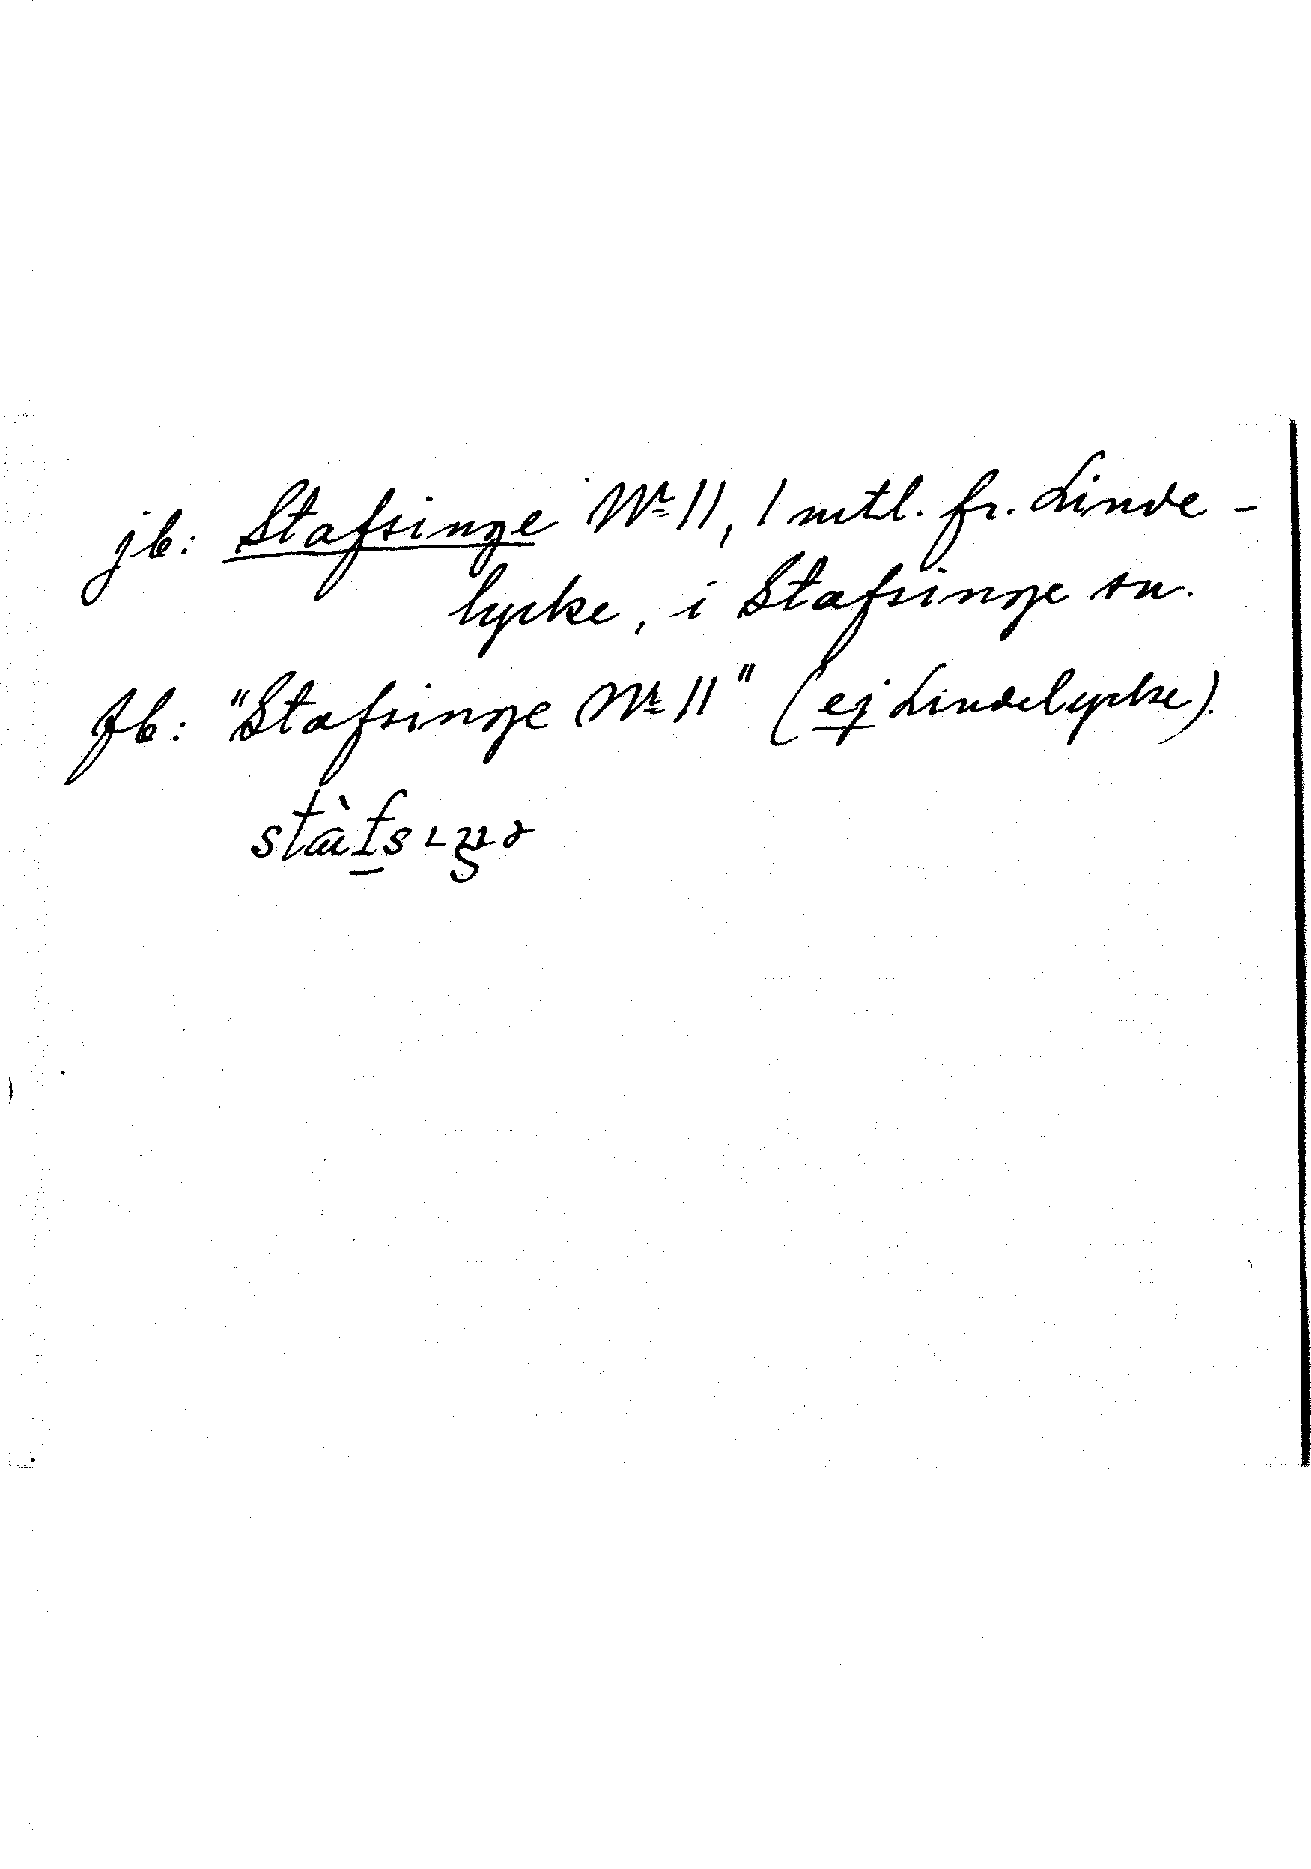 jb: Stafsinge Nr 11, 1 mtl. fr. Linde-
lycke, i Stafsinge sn.
fb: "Stafsinge Nr 11" (ej Lindelycke).